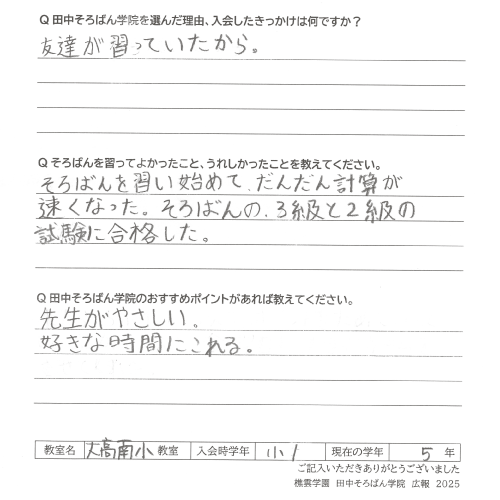 Q 田中そろばん学院を選んだ理由、入会したきっかけは何ですか？
友達が習っていたから。
Q そろばんを習ってよかったこと、うれしかったことを教えてください。
そろばんを習い始めて、だんだん計算が
速くなった。そろばんの、3級と2級の
試験に合格した。
Q 田中そろばん学院のおすすめポイントがあれば教えてください。
先生がやさしい。
好きな時間にこれる。
教室名 大高南小 教室 入会時学年 小1 現在の学年 5 年
ご記入いただきありがとうございました
樵雲学園 田中そろばん学院 広報 2025